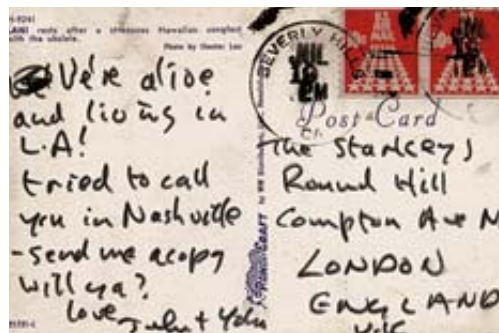 H-9241
LANI rests after a strenuous Hawaiian songfest
with the ukulele.
Photo by Chester Lau
We're alive
and living in
L.A!
tried to call
you in Nashville
-send me a copy
will ya?
love
John + Yoko
BEVERLY HILLS
JUL
PM
Post Card
The Stanleys
Round Hill
Compton Ave N
LONDON
ENGLAND